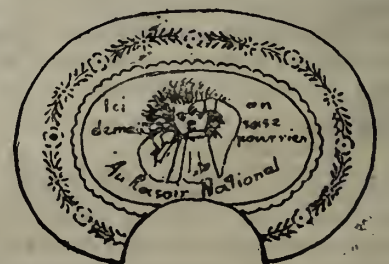 Ici
on
demain
rase
pour rien
Au Rasoir National